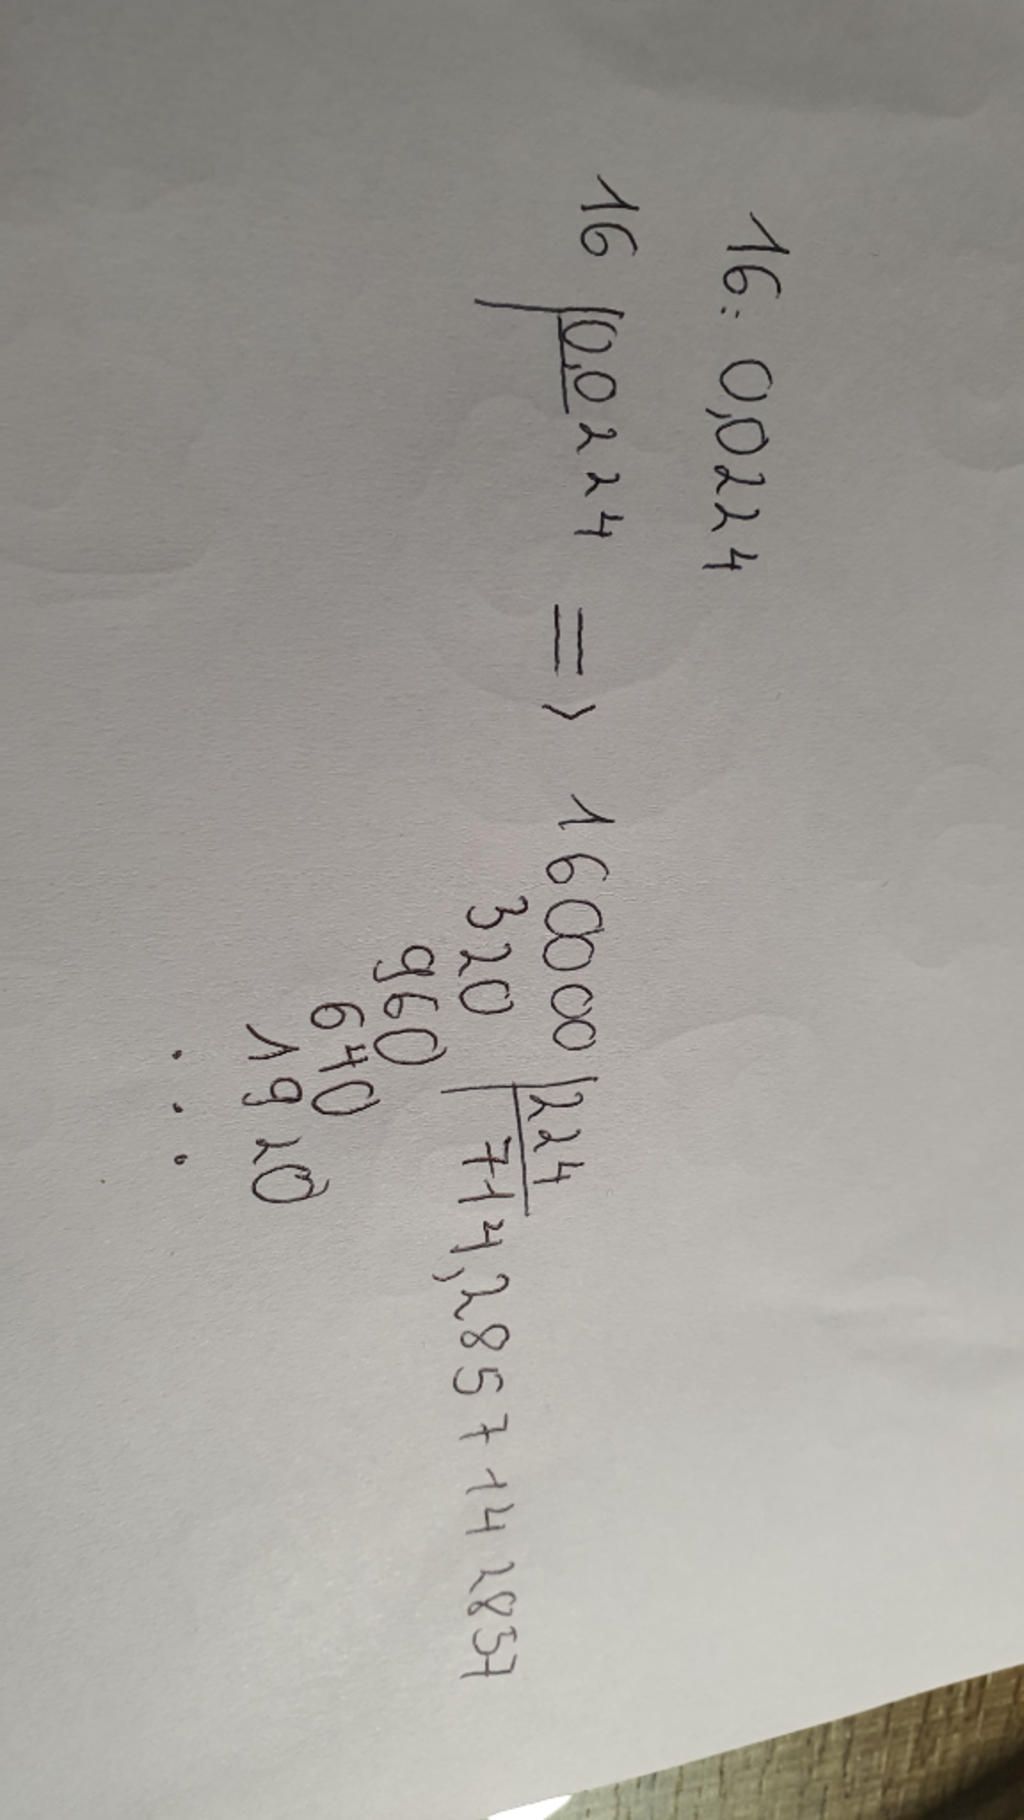 16: 0,0224
16 0,0224 => 160000 224
320 714,2857142857
960
640
1920
...